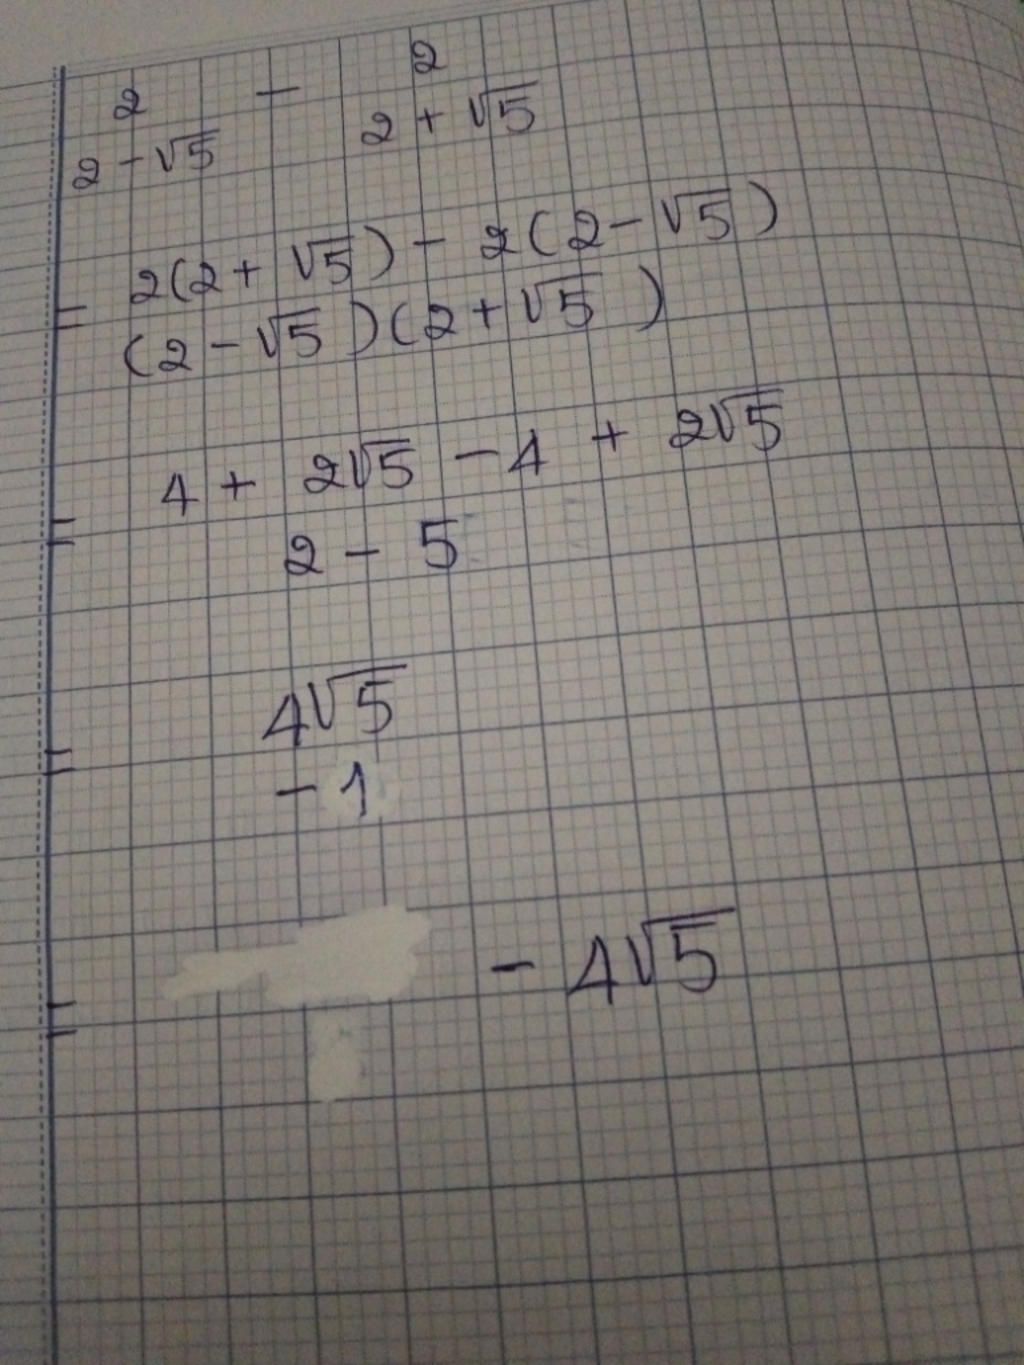 2 - 2
2 - √5 2 + √5
= 2(2 + √5) - 2(2 - √5)
(2 - √5)(2 + √5)
= 4 + 2√5 - 4 + 2√5
2 - 5
= 4√5
- 1
= - 4√5